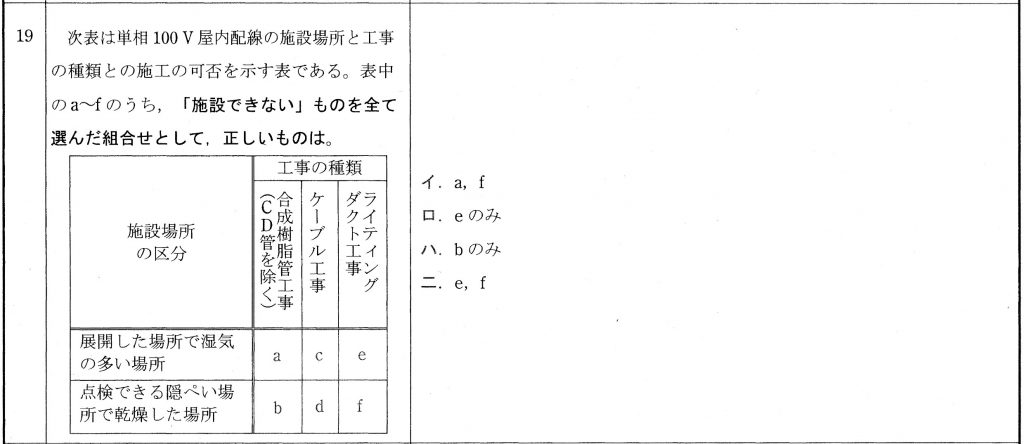 19
次表は単相 100 V 屋内配線の施設場所と工事
の種類との施工の可否を示す表である。表中
の a～f のうち，「施設できない」ものを全て
選んだ組合せとして，正しいものは。
工事の種類
施設場所
の区分
合成樹脂管工事
（ＣＤ管を除く）
ケーブル工事
ライティング
ダクト工事
展開した場所で湿気
の多い場所
a
c
e
点検できる隠ぺい場
所で乾燥した場所
b
d
f
イ．a，f
ロ．e のみ
ハ．b のみ
ニ．e，f